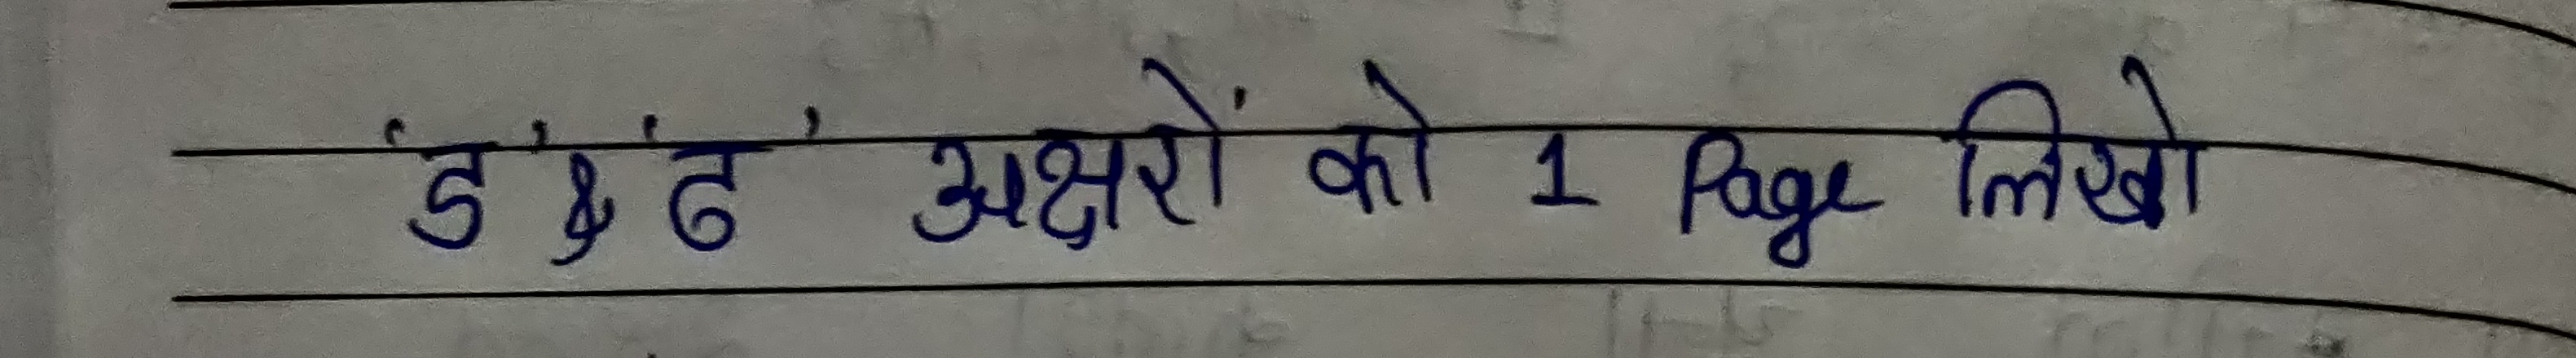 'ड' & 'ढ' अक्षरों को 1 Page लिखो